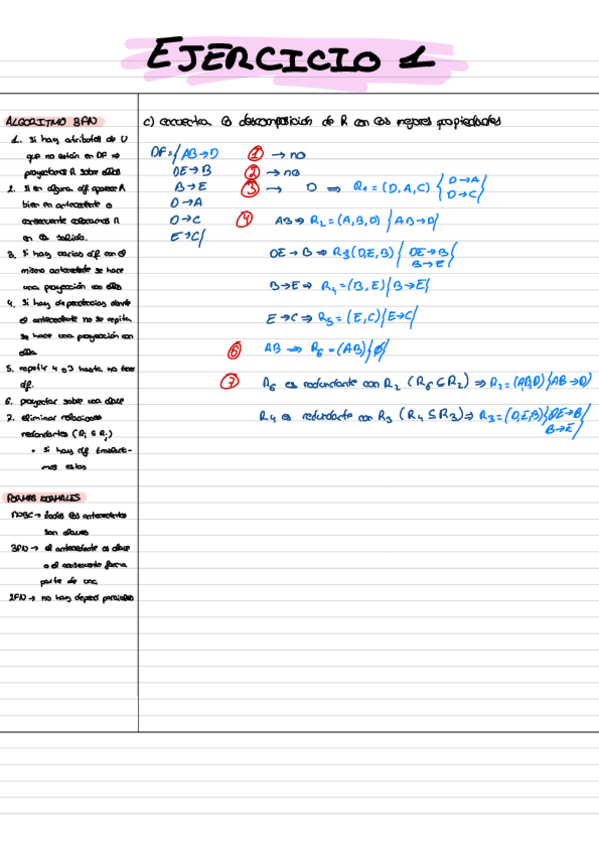 EJERCICIO 1
ALGORITMO 3FN
1. Si hay atributos de U
que no están en DF ⇒
proyectamos R sobre ellos
2. Si en alguna df aparece R
bien en antecedente o
consecuente colocamos R
en la salida.
3. Si hay varias df con el
mismo antecedente se hace
una proyección con ellas
4. Si hay dependencias donde
el antecedente no se repita
se hace una proyección con
ellas
5. repetir 4 o 3 hasta no tener
df.
6. proyectar sobre una clave
7. eliminar relaciones
redundantes (Ri ⊆ Rj)
• Si hay df
FORMAS NORMALES
FNBC → todos los antecedentes
son claves
3FN → el antecedente es clave
o el consecuente forma
parte de una
2FN → no hay depend parciales
c) encuentra la descomposición de R con las mejores propiedades
DF={AB→D
DE→B
B→E
D→A
D→C
E→C}
① → no
② → no
③ → D ⇒ R1=(D,A,C) {D→A
D→C}
④ AB ⇒ R2=(A,B,D) {AB→D}
DE→B ⇒ R3(D,E,B) {DE→B
B→E}
B→E ⇒ R4=(B,E){B→E}
E→C ⇒ R5=(E,C){E→C}
⑥ AB ⇒ R6=(AB){∅}
⑦ R6 es redundante con R2 (R6⊆R2) ⇒ R2=(A,B,D){AB→D}
R4 es redundante con R3 (R4⊆R3) ⇒ R3=(D,E,B){DE→B
B→E}